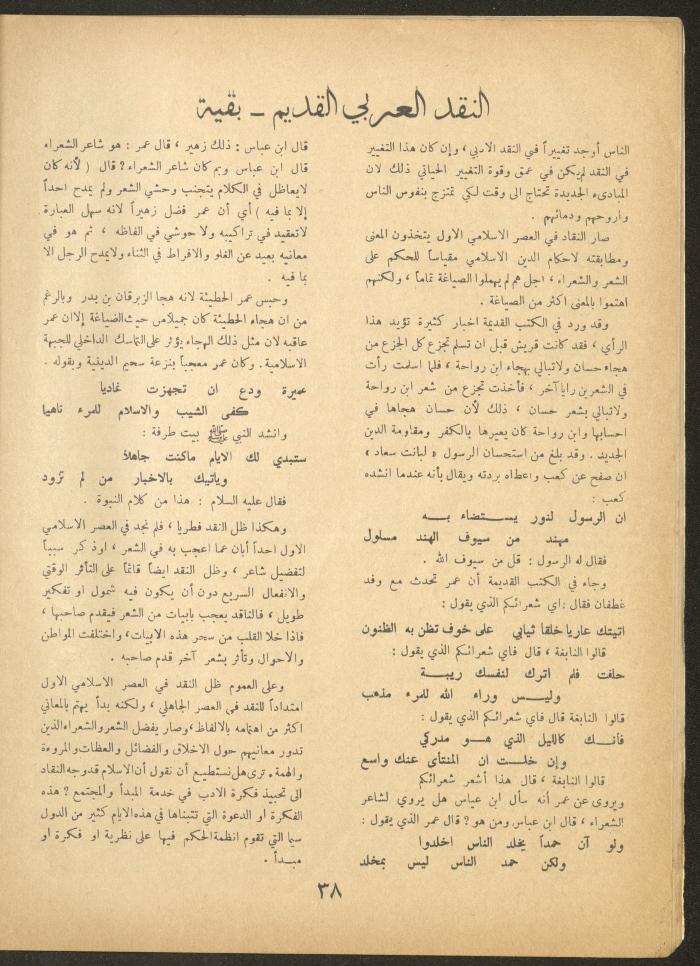 النقد العربي القديم ــ بقية
الناس أوجد تغييراً في النقد الادبي ، وإن كان هذا التغيير
في النقد لم يكن في عمق وقوة التغيير الحياتي ذلك لان
المبادىء الجديدة تحتاج الى وقت لكي تمتزج بنفوس الناس
وأروحهم ودمائهم .
صار النقاد في العصر الاسلامي الاول يتخذون المعنى
ومطابقته لاحكام الدين الاسلامي مقياساً للحكم على
الشعر والشعراء ، اجل هم لم يهملوا الصياغة تماماً ، ولكنهم
اهتموا بالمعنى اكثر من الصياغة .
وقد ورد في الكتب القديمة اخبار كثيرة تؤيد هذا
الرأي ، فقد كانت قريش قبل ان تسلم تجزع كل الجزع من
هجاء حسان ولاتبالي بهجاء ابن رواحة ، فلما اسلمت رأت
في الشعرين رايا آخر ، فأخذت تجزع من شعر ابن رواحة
ولاتبالي بشعر حسان ، ذلك لأن حسان هجاها في
احسابها وابن رواحة كان يعيرها بالكفر ومقاومة الدين
الجديد . وقد بلغ من استحسان الرسول « لبانت سعاد »
ان صفح عن كعب واعطاه بردته ويقال بأنه عندما انشده
كعب :
ان الرسول لنور يستضاء بــه
مهند من سيوف الهند مسلول
فقال له الرسول : قل من سيوف الله .
وجاء في الكتب القديمة أن عمر تحدث مع وفد
غطفان فقال : اي شعرائكم الذي يقول :
اتيتك عاريا خلقا ثيابي على خوف تظن به الظنون
قالوا النابغة ، قال فاي شعرائكم الذي يقول :
حلفت فلم اترك لنفسك ريبــة
وليــس وراء الله للمرء مذهب
قالوا النابغة قال فاي شعرائكم الذي يقول :
فأنــك كالليل الذي هــو مدركي
وإن خلــت ان المنتأى عنك واسع
قالوا النابغة ، قال هذا أشعر شعرائكم
ويروى عن عمر أنه سأل ابن عباس هل يروي لشاعر
الشعراء ، قال ابن عباس ومن هو ؟ قال عمر الذي يقول :
ولو آن حمداً يخلد الناس اخلدوا
ولكن حمد الناس ليس بمخلد
قال ابن عباس : ذلك زهير ، قال عمر : هو شاعر الشعراء
قال ابن عباس وبم كان شاعر الشعراء ؟ قال ( لأنه كان
لايعاظل في الكلام يتجنب وحشي الشعر ولم يمدح احداً
إلا بما فيه ) أي أن عمر فضل زهيراً لانه سهل العبارة
لاتعقيد في تراكيبه ولا حوشي في الفاظه ، ثم هو في
معانيه بعيد عن الغلو والافراط في الثناء ولايمدح الرجل الا
بما فيه .
وحبس عمر الحطيئة لانه هجا الزبرقان بن بدر وبالرغم
من ان هجاء الحطيئة كان جميلاس حيث الضياغة إلاان عمر
عاقبه لان مثل ذلك الهجاء يؤثر على التماسك الداخلي للجبهة
الاسلامية . وكان عمر معجباً بنزعة سحيم الدينية وبقوله .
عميرة ودع ان تجهزت غاديا
كفى الشيب والاسلام للمرء ناهيا
وانشد النبي ﷺ بيت طرفة :
ستبدي لك الايام ماكنت جاهلاً
ويأتيك بالاخبار من لم تزود
فقال عليه السلام : هذا من كلام النبوة .
وهكذا ظل النقد فطريا ، فلم نجد في العصر الاسلامي
الاول احداً أبان عما اعجب به في الشعر ، اوذ كر سبباً
لتفضيل شاعر ، وظل النقد ايضاً قائماً على التأثر الوقتي
والانفعال السريع دون أن يكون فيه شمول او تفكير
طويل ، فالناقد يعجب بابيات من الشعر فيقدم صاحبها ،
فاذا خلا القلب من سحر هذه الابيات ، واختلفت المواطن
والاحوال وتأثر بشعر آخر قدم صاحبه .
وعلى العموم ظل النقد في العصر الاسلامي الاول
امتداداً للنقد في العصر الجاهلي ، ولكنه بدأ يهتم بالمعاني
اكثر من اهتمامه بالالفاظ ، وصار يفضل الشعر والشعراء الذين
تدور معانيهم حول الاخلاق والفضائل والعظات والمروءة
والهمة . ترى هل نستطيع أن نقول أن الاسلام قد وجه النقاد
الى تحبيذ فكرة الادب في خدمة المبدأ والمجتمع ؟ هذه
الفكرة او الدعوة التي تتبناها في هذه الايام كثير من الدول
سيما التي تقوم انظمة الحكم فيها على نظرية او فكرة او
مبــدأ .
٣٨